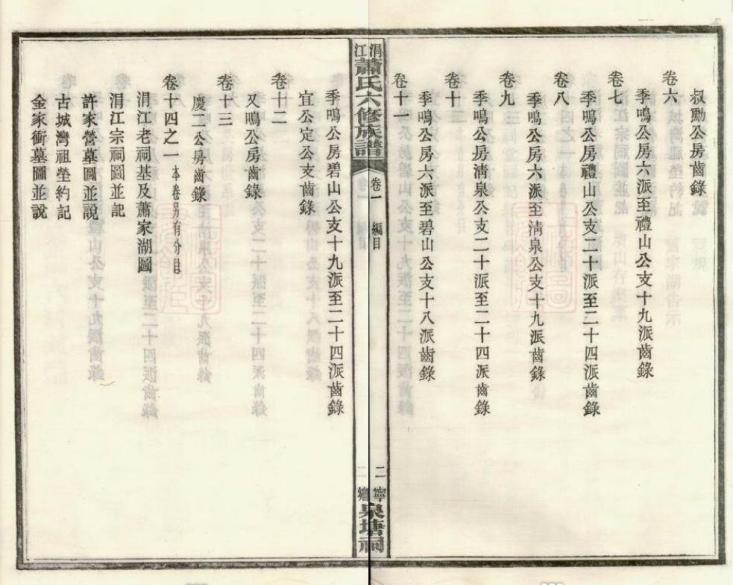 叔勳公房齒錄
卷六
季鳴公房六派至禮山公支十九派齒錄
卷七
季鳴公房禮山公支二十派至二十四派齒錄
卷八
季鳴公房六派至清泉公支十九派齒錄
卷九
季鳴公房清泉公支二十派至二十四派齒錄
卷十
季鳴公房六派至碧山公支十八派齒錄
卷十一
涓江蕭氏六修族譜
卷一
編目
二
寧鄉泉塘祠
季鳴公房碧山公支十九派至二十四派齒錄
宜公定公支齒錄
卷十二
又鳴公房齒錄
卷十三
慶二公房齒錄
卷十四之一本卷另有分目
涓江老祠基及蕭家湖圖
涓江宗祠圖並記
許家營墓圖並說
古城灣祖塋約記
金家衝墓圖並說